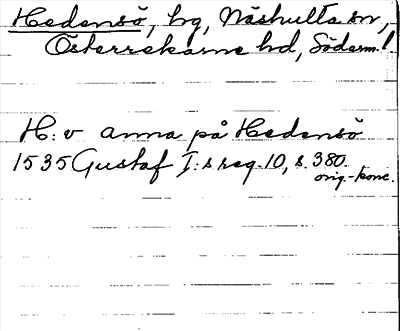 Hedensö, hg, Näshulta sn,
Österrekarne hd, Söderm. l.
H: v anna på Hedensö
1535 Gustaf I:s reg. 10, s. 380.
orig.-konc.